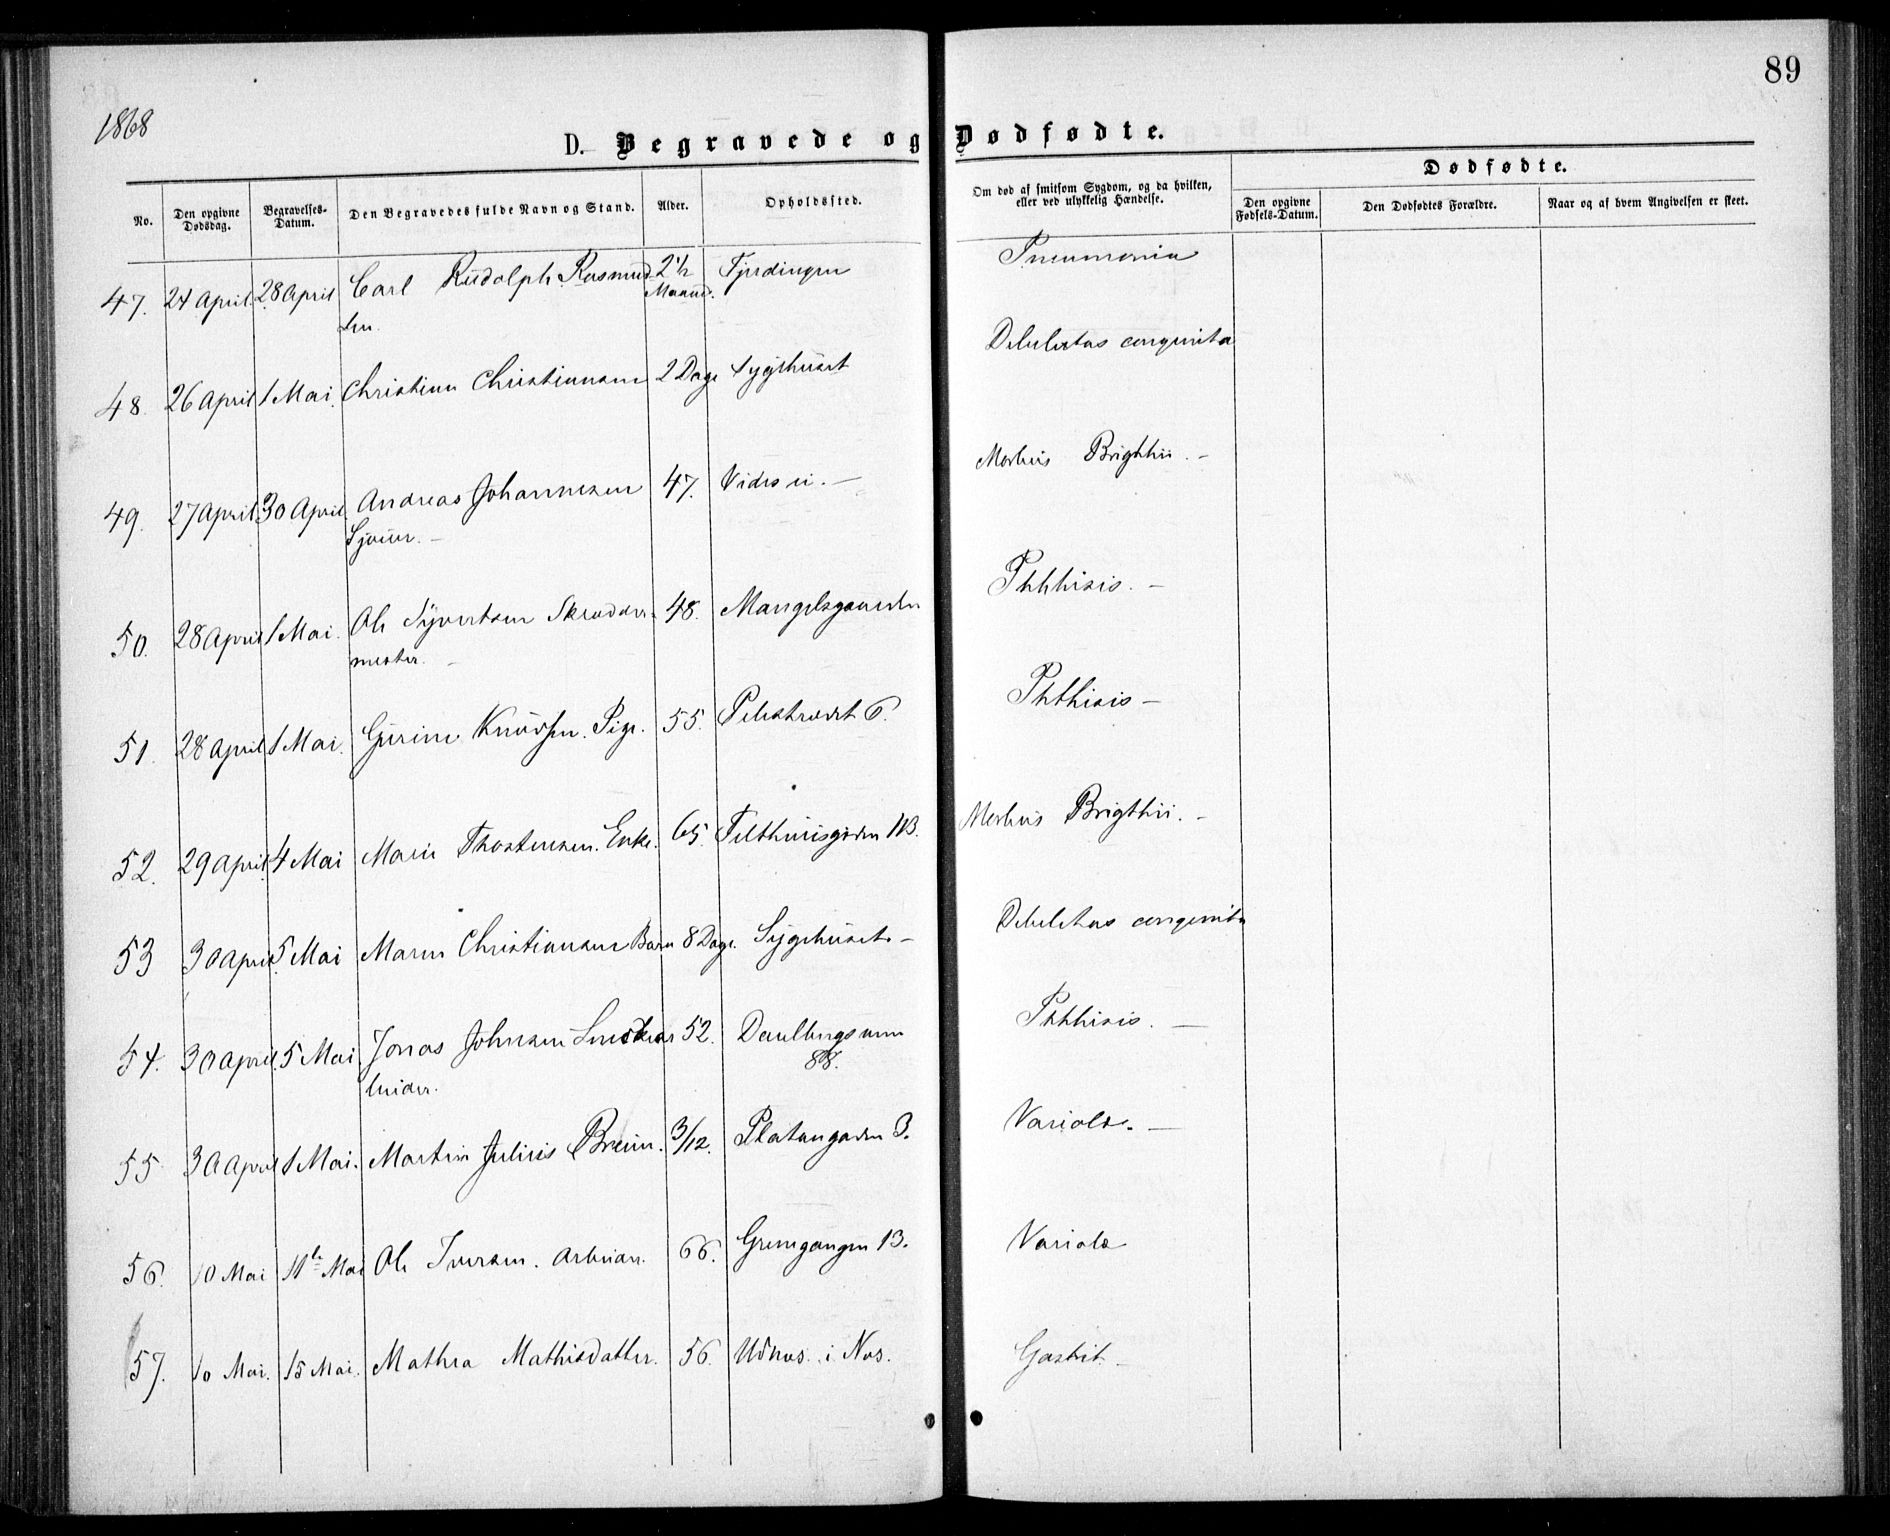 89
1868
D. Begravede og Dødfødte.
No. Den opgivne Dødsdag. Begravelses-Datum. Den Begravedes fulde Navn og Stand. Alder. Opholdssted. Om død af smitsom Sygdom, og da hvilken, eller ved ulykkelig Hændelse. Dødfødte.
Den opgivne Fødsels-Datum. Den Dødfødtes Forældre. Naar og af hvem Angivelsen er skeet.
47. 24 April 28 April Carl Rudolph Rasmus 2½ Maaned. Fjerdingen Pneumonia
sen.
48. 26 April 1 Mai. Christian Christiansen 2 Dage Sygehuset Debilitas congenita
49. 27 April 30 April Andreas Johannesen 47. Morbus Brighhii. -
50. 28 April 1 Mai. Ole Syvertsen Skrædder- 48. Mangelsgaarden Phthisis. -
mester. -
51. 28 April 1 Mai. Gurine Knudsen. Pige. 55. Pilestrædet 6. Phthisis -
52. 29 April 4 Mai Marie Thostensen. Enke. 65. Morbus Brigthii. -
53 30 April 5 Mai Maren Christiansen Barn 8 Dage. Sygehuset. - Debilitas congenita
54. 30 April. 5 Mai Jonas Johnsen 52. Phthisis. -
88.
55 30 April 1 Mai. Martin Julius Bruun. 3/12. Platougaden 3. Variola. -
56. 10 Mai 11te Mai Ole Iversen. Arbeider. 66. Grønnegangen 13. Variola
57. 10 Mai. 15 Mai. Mathea Mathisdatter. 56. Udnæs. i Næs. Gastrit -